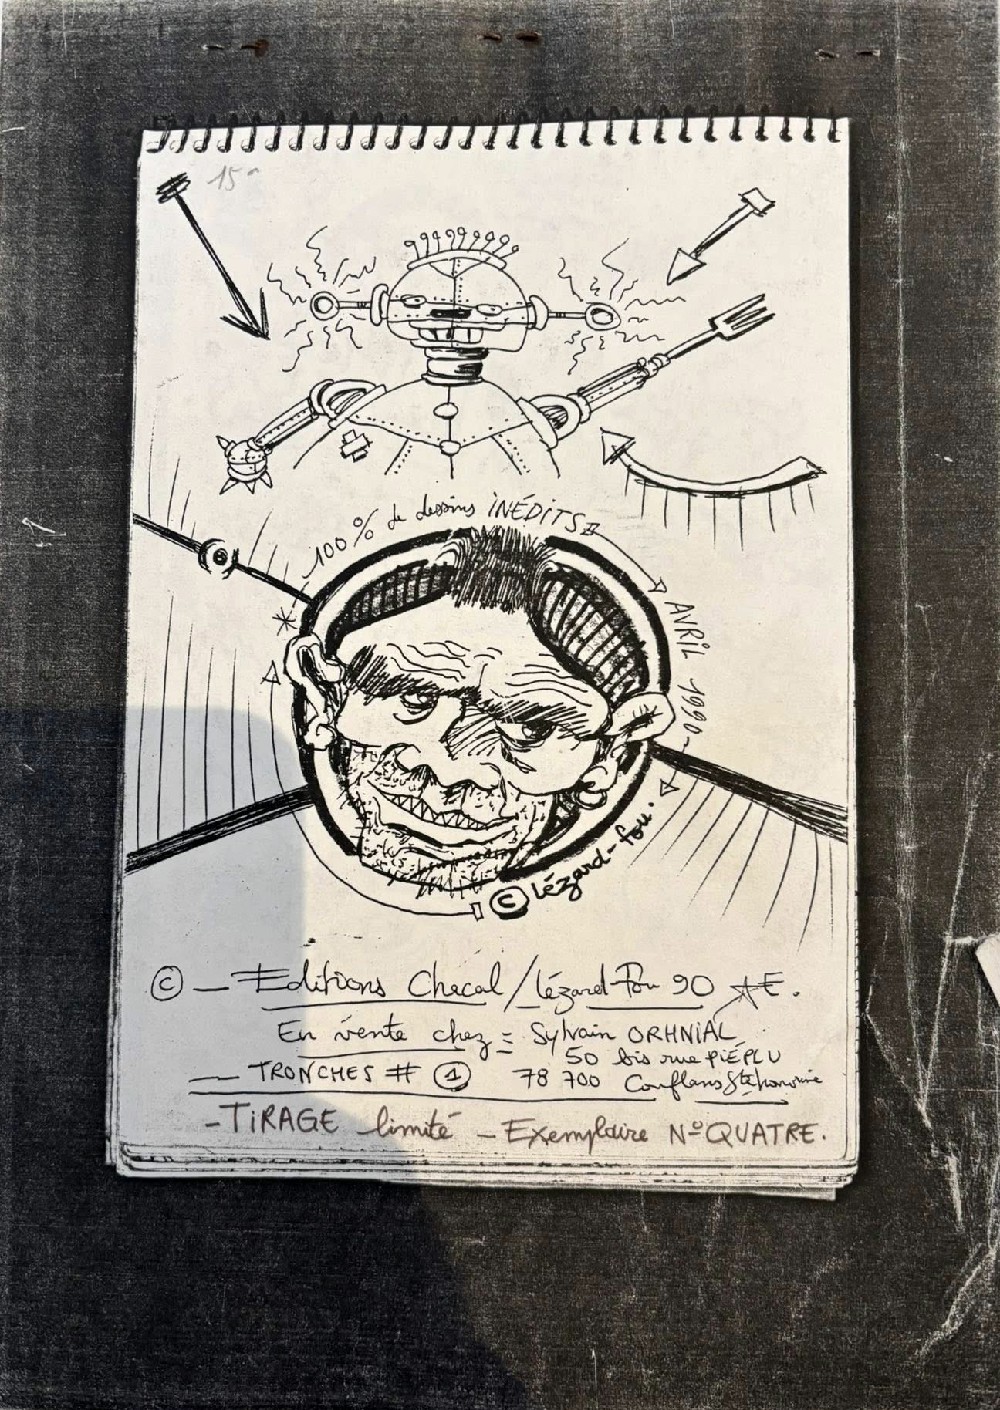 15
100% de dessins INÉDITS
AVRIL 1990
© lézard-fou.
© — Editions Chacal / Lézard-Fou 90
En vente chez = Sylvain ORHNIAL
50 bis rue PIÉPLU
— TRONCHES # 1 78 700 Conflans Ste honorine
- TiRAGE limité - Exemplaire N° QUATRE.